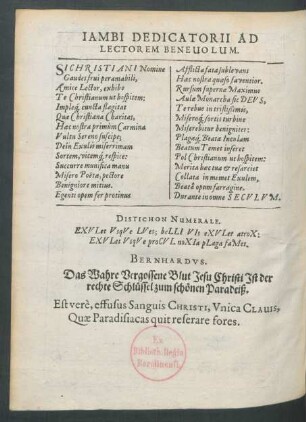 IAMBI DEDICATORII AD
LECTOREM BENEVOLUM.
SI CHRISTIANI Nomine
Gaudes frui peramabili,
Amice Lector, exhibe
Te Christianum ut hospitem;
Impleq́ cuncta flagitat
Quæ Christiana Charitas,
Hæc nostra primùm Carmina
Vultu Sereno suscipe;
Dein Exulis miserrimam
Sortem, vicemq́, respice:
Succurre munificâ manu
Misero Poëtæ, pectore
Benigniore mitius.
Egenti opem fer protinus
Afflicta fata sublevans
Hac nostra quæso faventior.
Rursum superna Maximus
Aula Monarcha sic DEUS,
Te rebus in tristissimis,
Miseroq́, fortis turbine
Miserebitur benigniter:
Plagaq́, Beatæ Insulam
Beatum Tonet inferet
Pol Christianum ut hospitem:
Collata in inimet Exulem,
Beatè opem farragine.
Durante in omne SECULUM.
DISTICHON NUMERALE.
EXVLet VsqVe LVes; beLLI VIs eXVLet atroX:
EXVLet VsqVe proCVL noXIa pLaga faMes.
BERNHARDVS.
Das Wahre Vergossene Blut Jesu Christi Ist der
rechte Schlüssel zum schönen Paradeiß.
Est verè, effusus Sanguis CHRISTI, Vnica CLAUIS,
Quæ Paradisiacas quit referare fores.
Ex
Biblioth. Regia
Berolinensi.